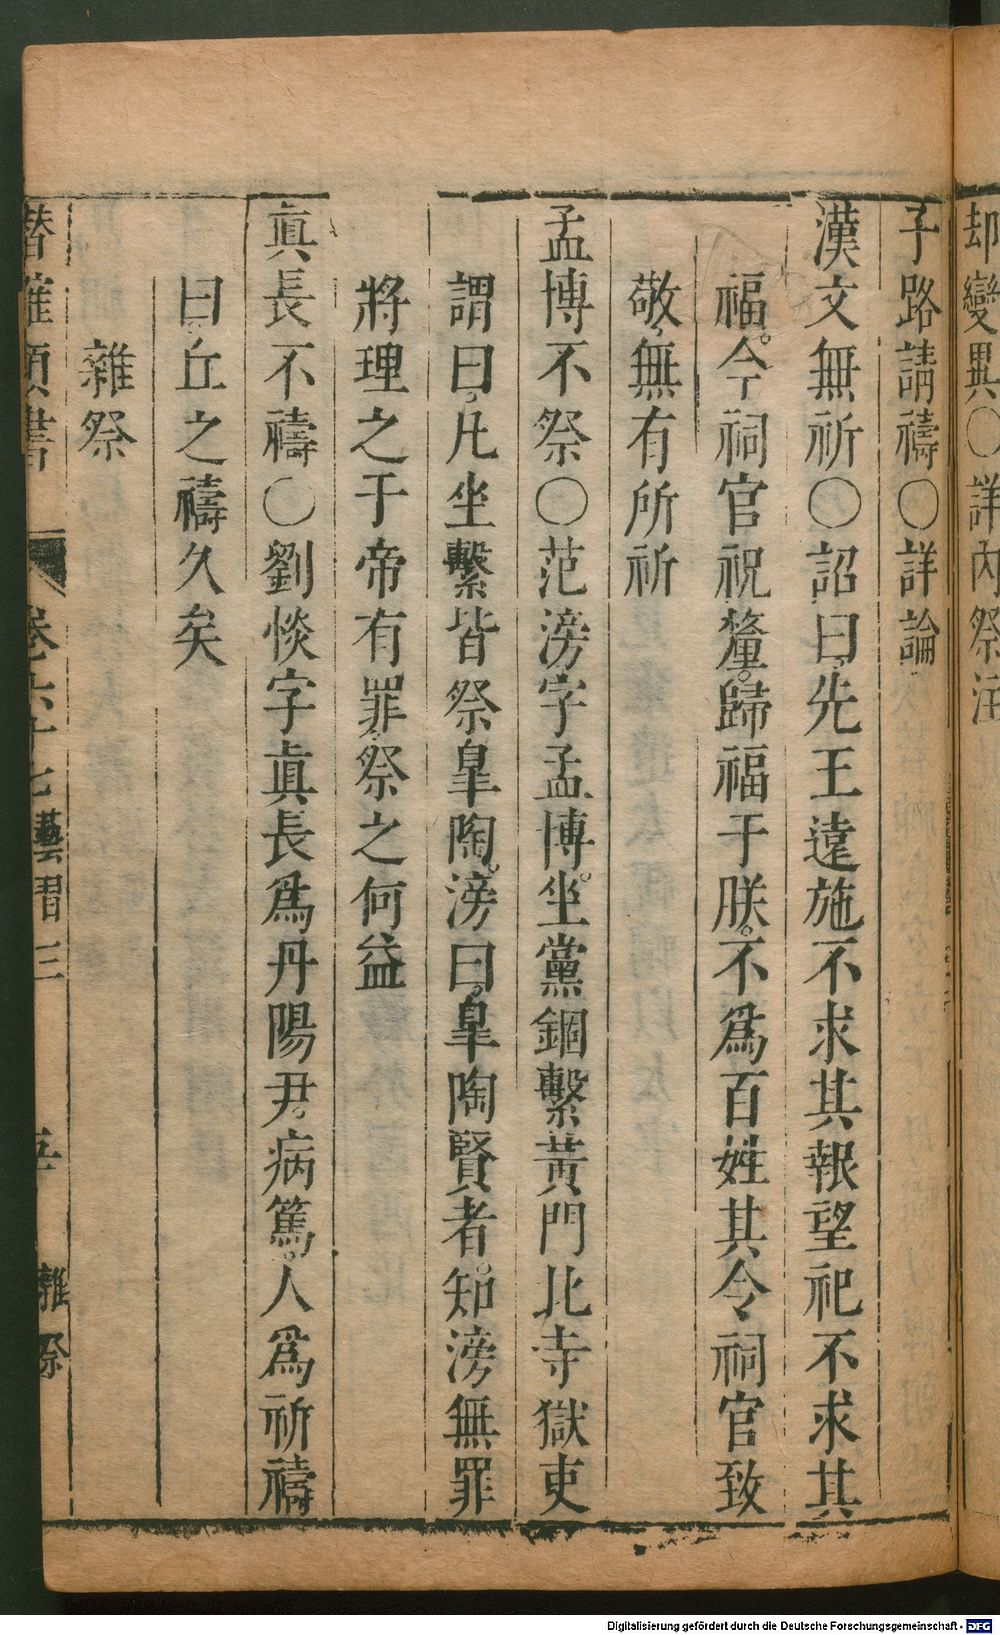 却變異〇詳內祭注
子路請禱〇詳論
漢文無祈〇詔曰先王遠施不求其報望祀不求其
福。今祠官祝釐。歸福于朕。不爲百姓其令祠官致
敬無有所祈
孟博不祭〇范滂字孟博。坐黨錮繫黃門北寺獄吏
謂曰凡坐繫皆祭皐陶。滂曰。皐陶賢者。知滂無罪
將理之于帝有罪祭之何益
眞長不禱〇劉惔字眞長爲丹陽尹。病篤。人爲祈禱
曰。丘之禱久矣
雜祭
潛確類書 卷六十七 藝習三 雜祭
Digitalisierung gefördert durch die Deutsche Forschungsgemeinschaft - DFG